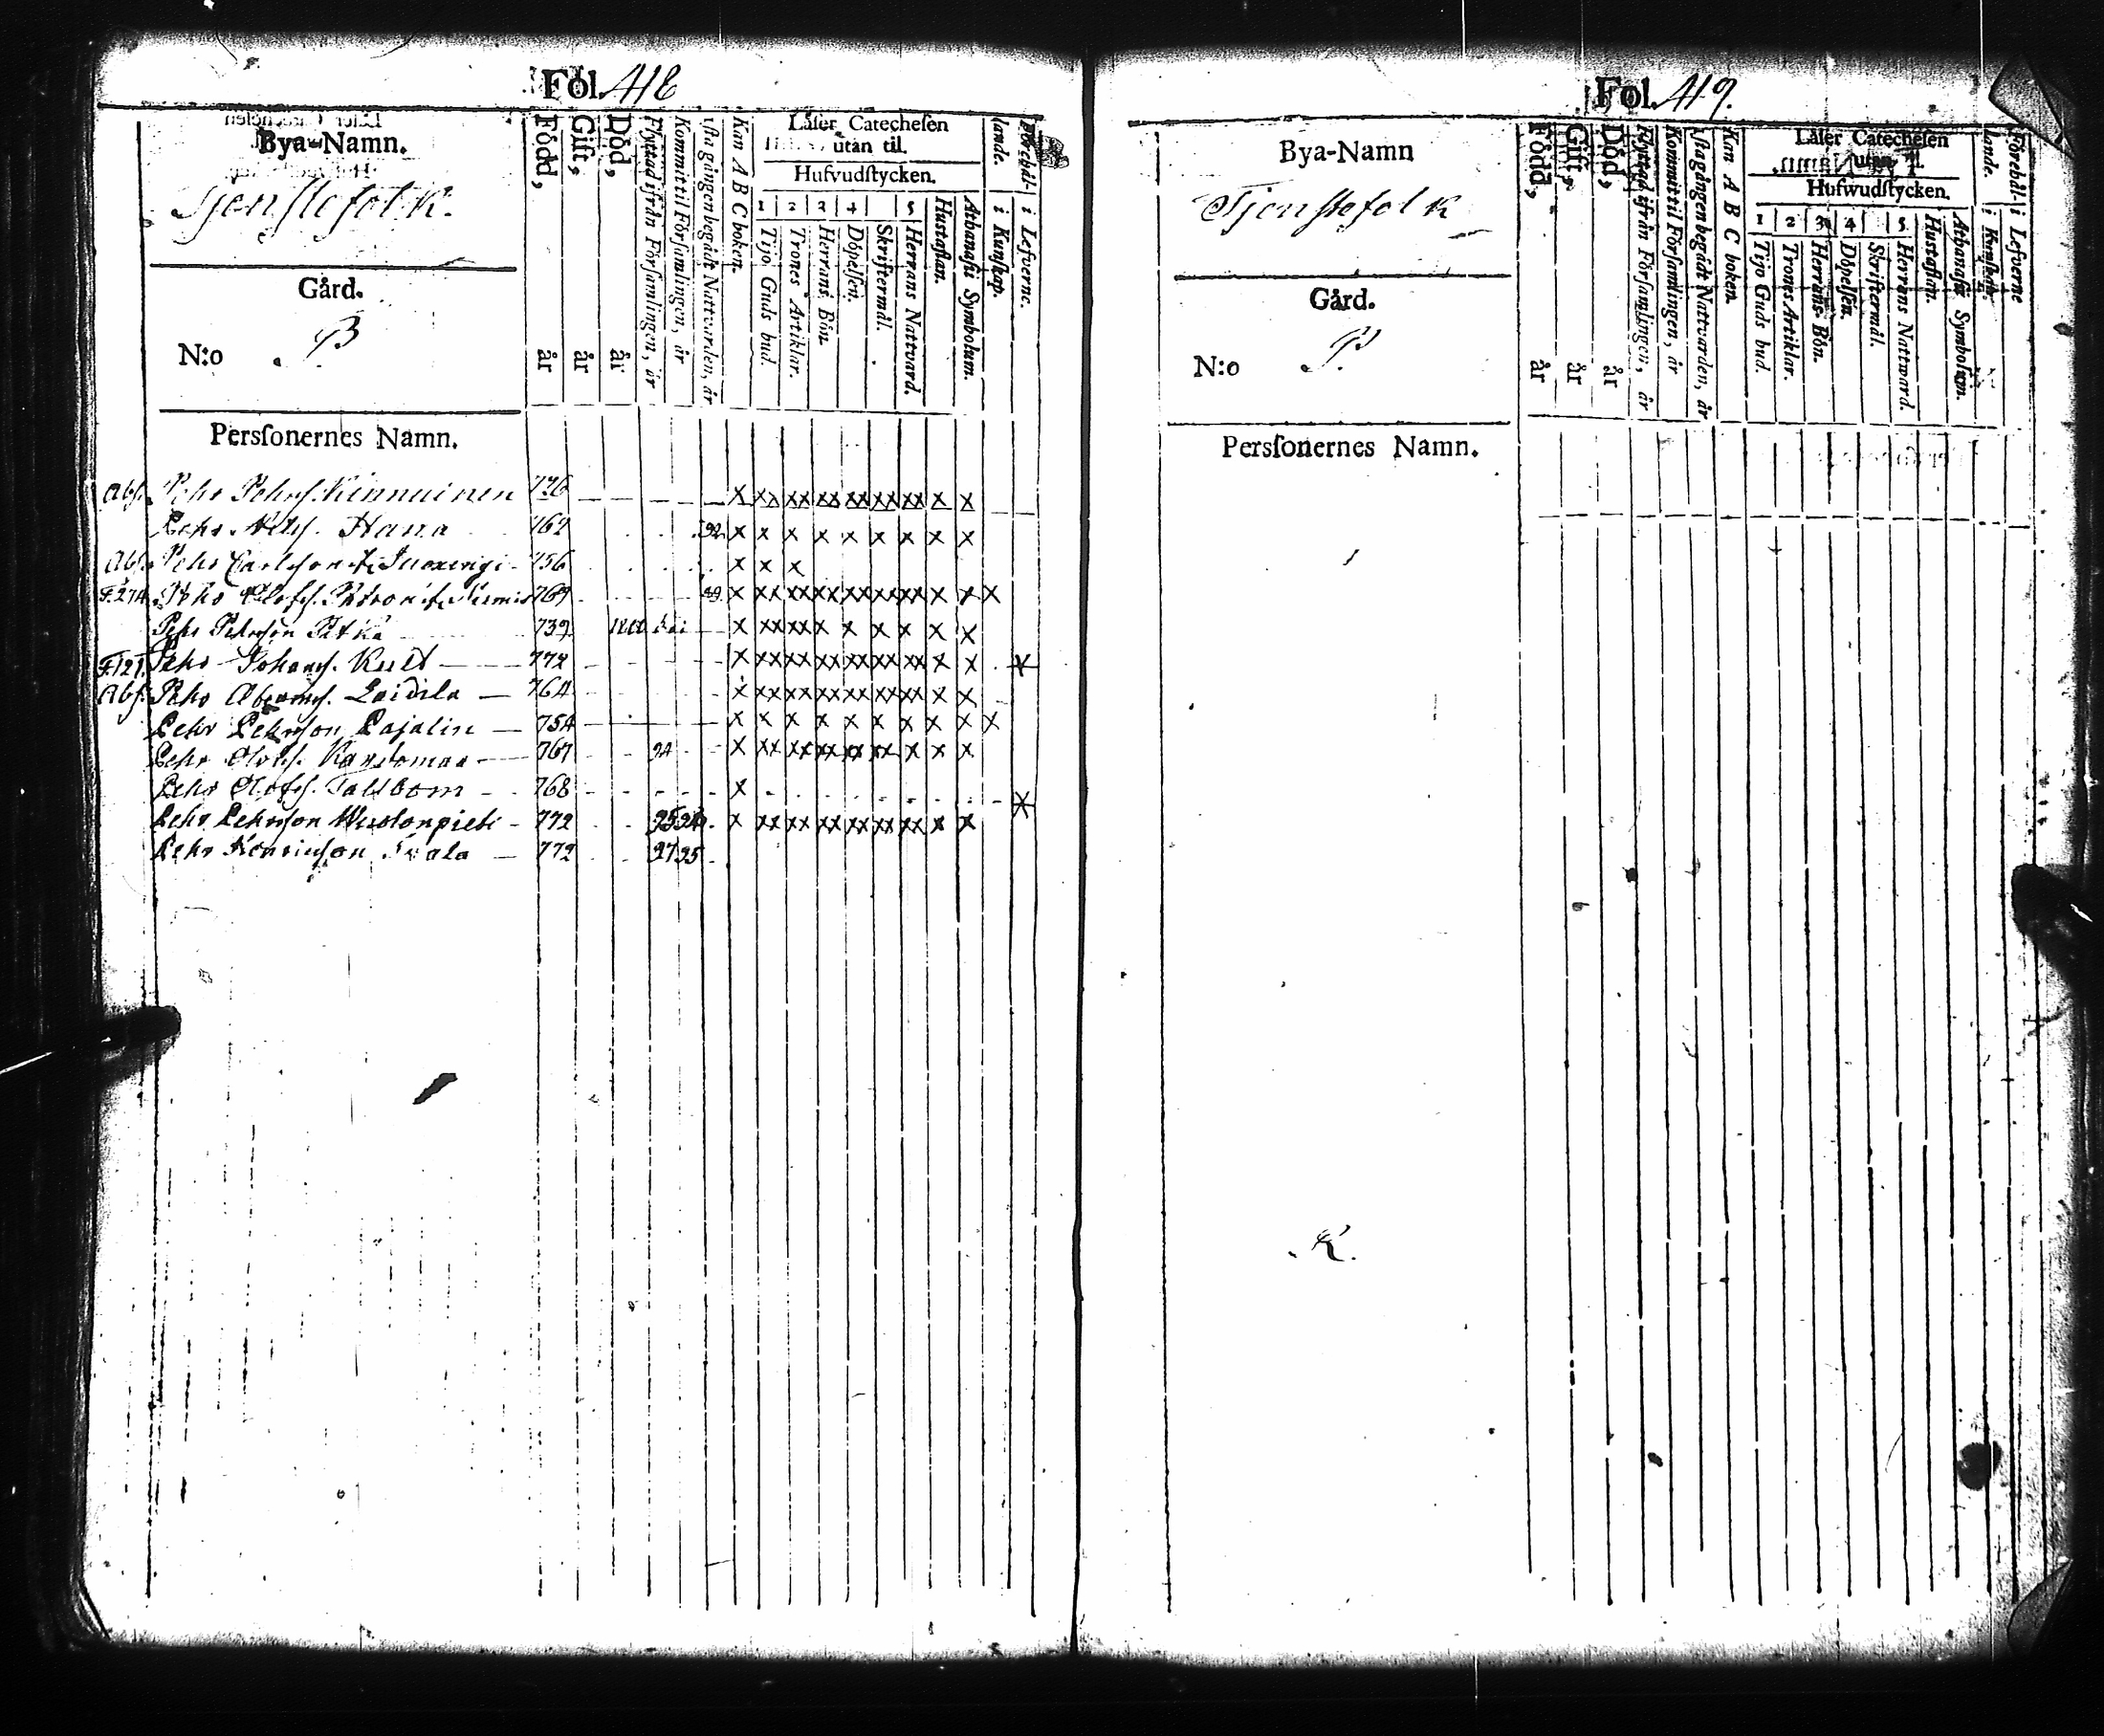 Fol. 418
Bya-Namn.
Tjenstefolk.
Gård.
N:o P.
Född, år
Gift, år
Död, år
Flyttad ifrån Församlingen, år
Kommit til Församlingen, år
1sta gången begådt Nattvarden, år
Kan A B C boken.
Låser Catechesen utan til.
Hufvudstycken.
1 Tijo Guds bud.
2 Trones Artiklar.
3 Herrans Bön.
4 Döpelsen.
Skriftermål.
5 Herrans Nattvard.
Hustaflan.
Athanasii Symbolum.
Förehål-lande.
i Kunskap.
i Lefverne.
Personernes Namn.
Abs. Pehr Pehrss. Kinnuinen 776 x xx xx xx xx xx xx x x
Pehr Nilss. Hana 767 92 x x x x x x x x x
Abs. Pehr Carlsson 756 x x x
F. 274 Pehr Olofss. 769 89 x xx xx xx xx xx xx x x x
Pehr Pehrson Pitkä 739 1800 x xx xx x x x x x x
F. 121. Pehr Johanss. 772 x xx xx xx xx xx xx x x x
Abs. Pehr Abramss. Laidila 764 x xx xx xx xx xx xx x x
Pehr Pehrsson Pajalin 754 x x x x x x x x x x
Pehr Olofss. 767 94 x xx xx xx xx xx x x x
Pehr Olofss. Tallbom 768 x x
Pehr Pehrsson 772 95 x xx xx xx xx xx xx x x
Pehr Henrinsson 772 97 95
Fol. 419.
Bya-Namn
Tjenstefolk
Gård.
N:o P.
Född, år
Gift, år
Död, år
Flyttad ifrån Församlingen, år
Kommit til Församlingen, år
1sta gången begådt Nattvarden, år
Kan A B C boken.
Låser Catechesen utan til.
Hufwudstycken.
1 Tijo Guds bud.
2 Trones Artiklar.
3 Herrans Bön.
4 Döpelsen.
Skriftermål.
5 Herrens Nattward.
Hustaflan.
Athanasii Symbolum.
Förehål-lande.
i Kunskap.
i Lefverne
Personernes Namn.
K.